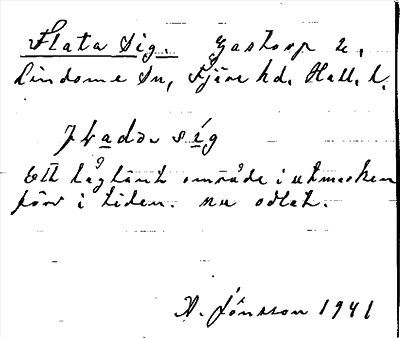 Flata Sig. Gastorp 2,
Lindome Sn, Fjäre hd. Hall. l.
fladda sig
Ett låglänt område i utmarken
förr i tiden. nu odlat.
A. Jönsson 1941